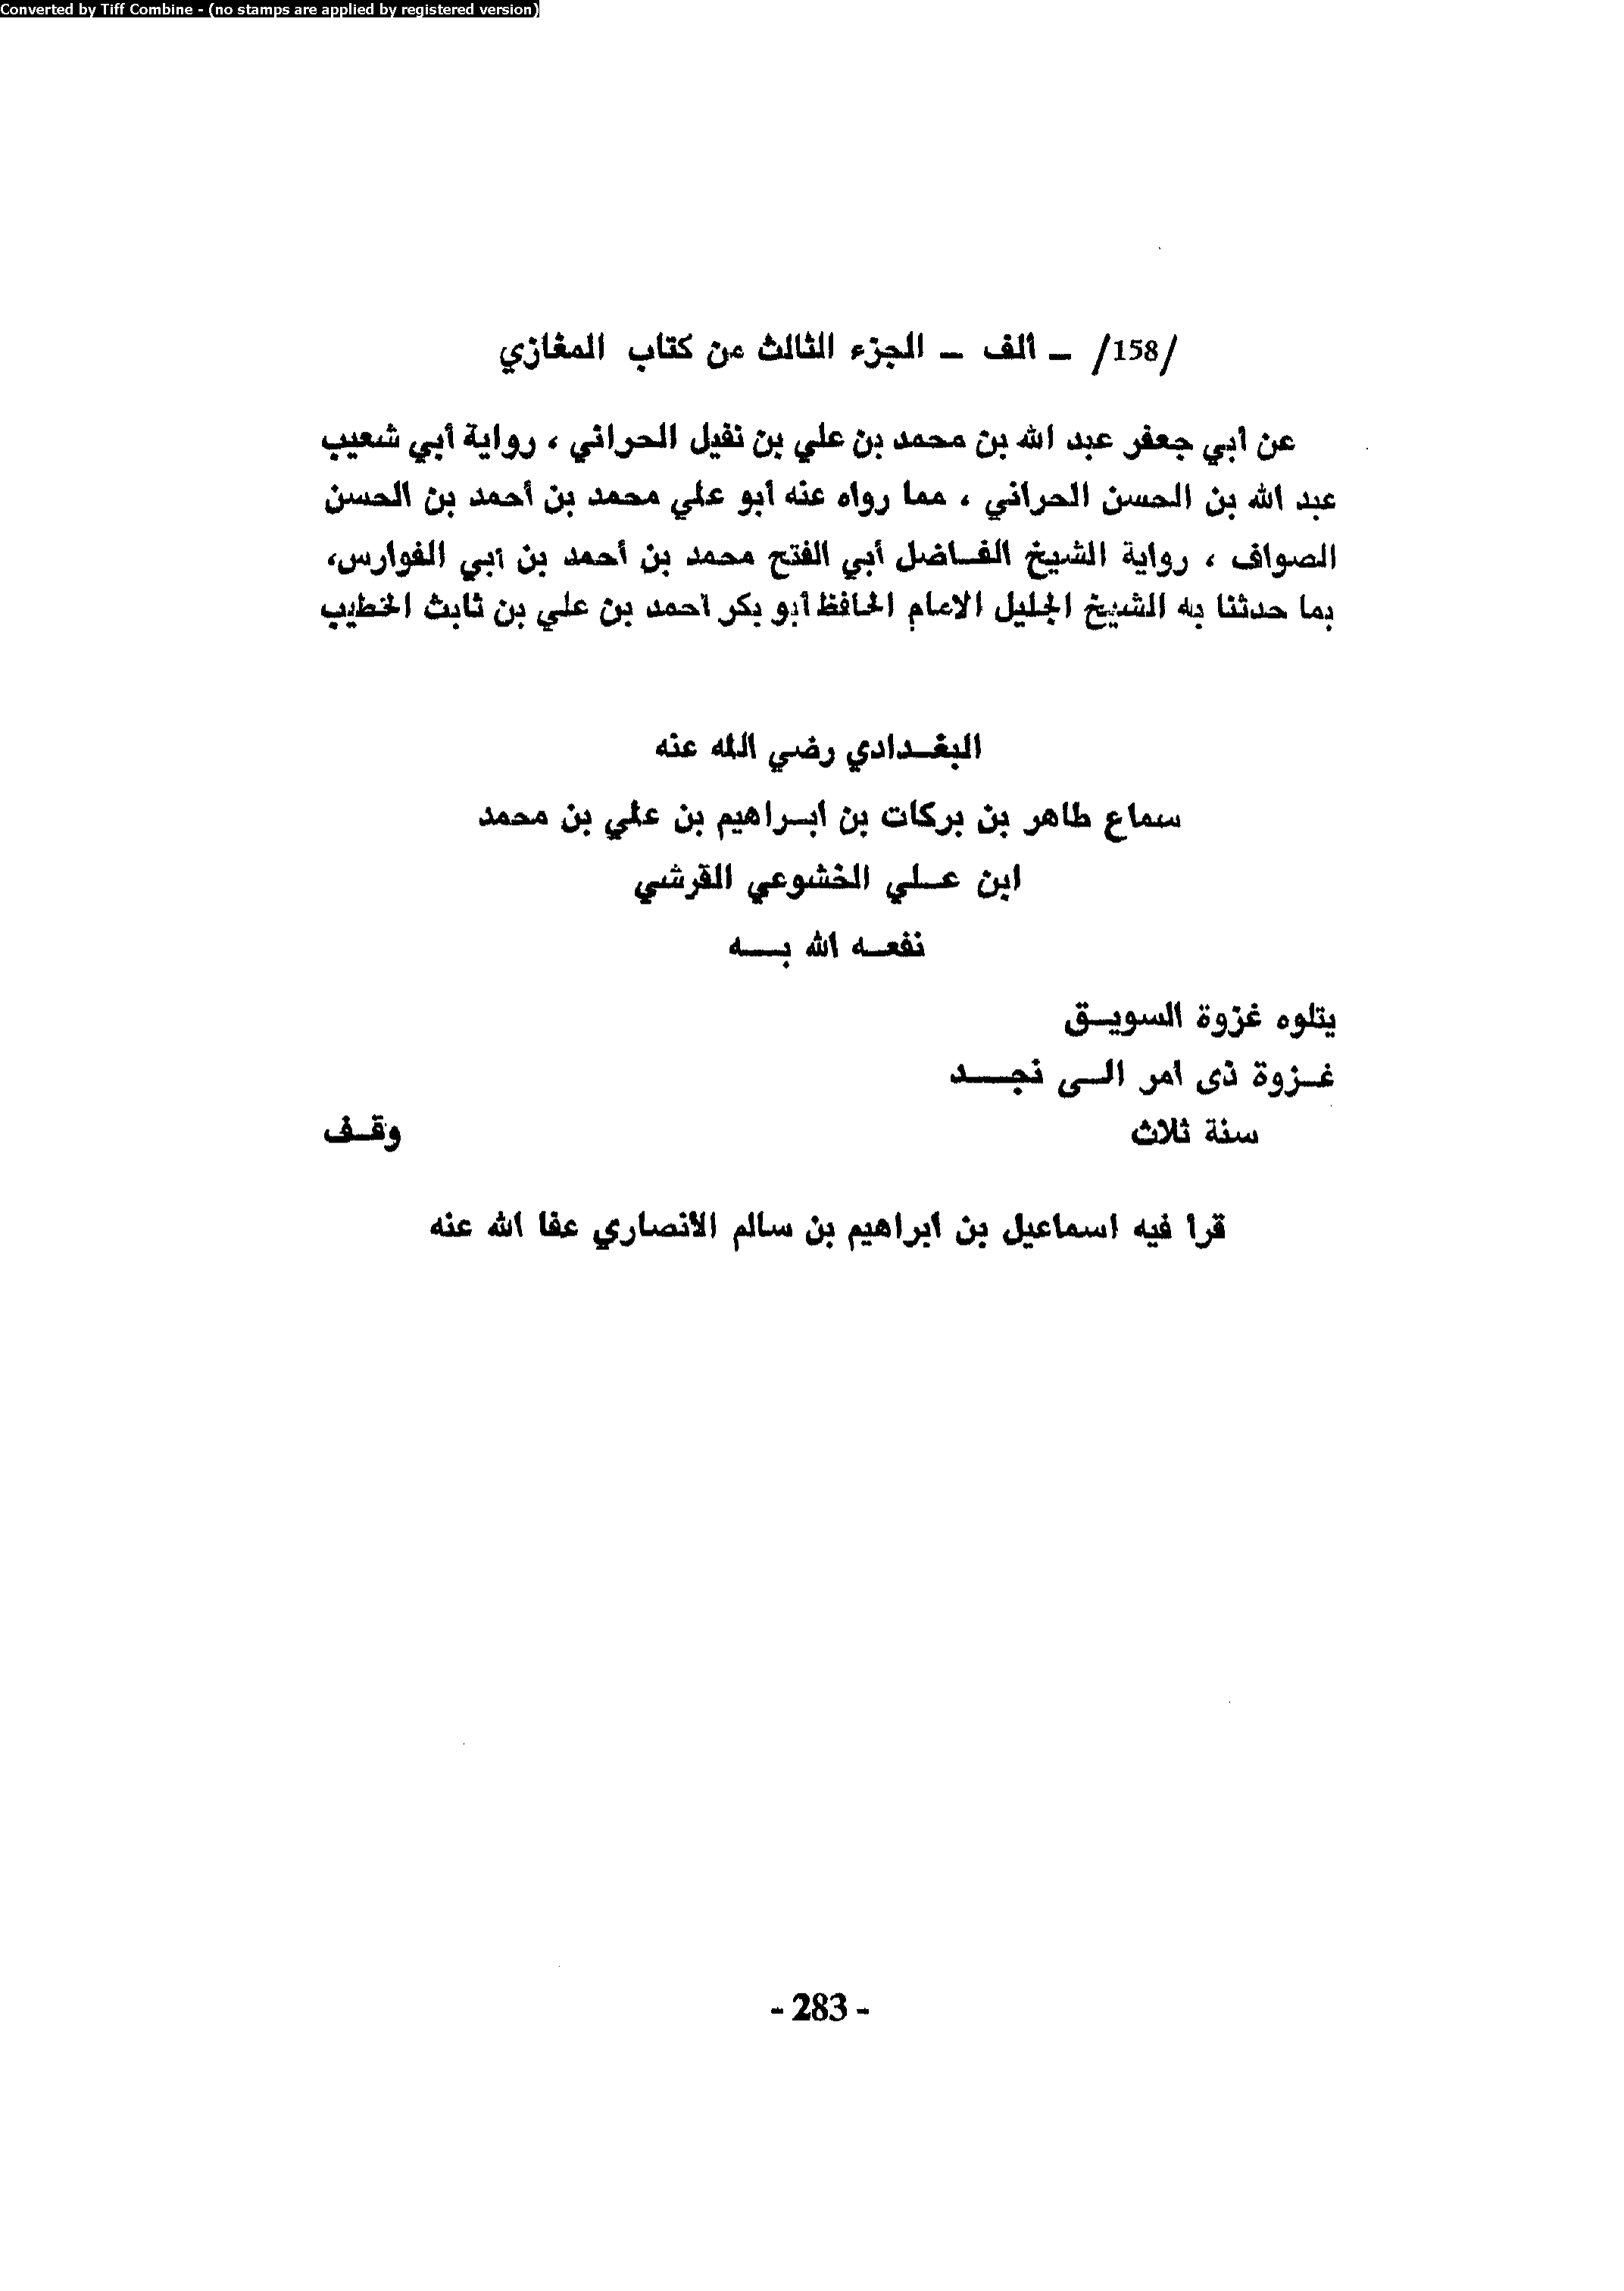 Converted by Tiff Combine - (no stamps are applied by registered version)
/158/ ـ ألف ـ الجزء الثالث من كتاب المغازي
عن أبي جعفر عبد الله بن محمد بن علي بن نفيل الحراني ، رواية أبي شعيب
عبد الله بن الحسن الحراني ، مما رواه عنه أبو علي محمد بن أحمد بن الحسن
الصواف ، رواية الشيخ الفـاضل أبي الفتح محمد بن أحمد بن أبي الفوارس،
بما حدثنا به الشيخ الجليل الامام الحافظ أبو بكر أحمد بن علي بن ثابث الخطيب
البغـدادي رضي الله عنه
سماع طاهر بن بركات بن ابـراهيم بن علي بن محمد
ابن عـلي الخشوعي القرشي
نفعـه الله بـه
يتلوه غزوة السويـق
غـزوة ذى امر الـى نجـد
سنة ثلاث وقـف
قرا فيه اسماعيل بن ابراهيم بن سالم الأنصاري عفا الله عنه
- 283 -